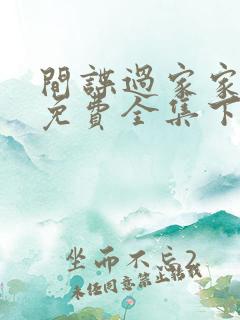 間諜過家家
免費全集下
坐而不忘2
未经同意禁止转载